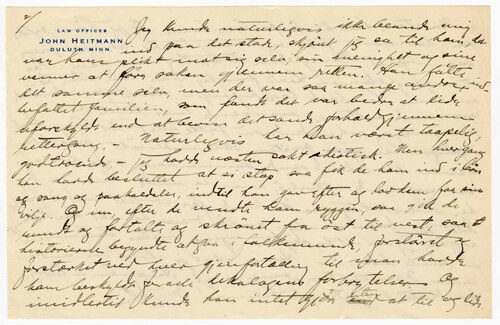 2/
LAW OFFICES
JOHN HEITMANN
DULUTH, MINN.
Jeg kunde naturligvis ikke blande mig
ind paa det sted, skjønt jeg sa til ham, det
var hans plikt mot sig selv, sin menighet og sine
venner at føre saken gjennem retten. Han følte
det samme selv, men der var saa mange andre ind-
befattet familien, som fandt det var bedre at lide
uforskyldt end at bevise det sande forhold gjennem
rettergang. – Naturligvis har han været taapelig,
godtroende – jeg hadde næsten sagt idiotisk. Men hver gang
han hadde besluttet at si stop, saa fik de ham ind i bøn
og sang og paakaldelse, indtil han gav efter og lod dem faa sin
vilje. Og nu efter de vendte ham ryggen, saa gik de
rundt og fortalte og skrønet fra øst til vest, saa at
historierne begyndte at gaa i folkemunde, forstørret og
forstærket ved hver gjenfortælling til man hadde
ham beskyldt for alle dekalogens forbrytelser. Og
imidlertid kunde han intet gjøre at tie og lide,